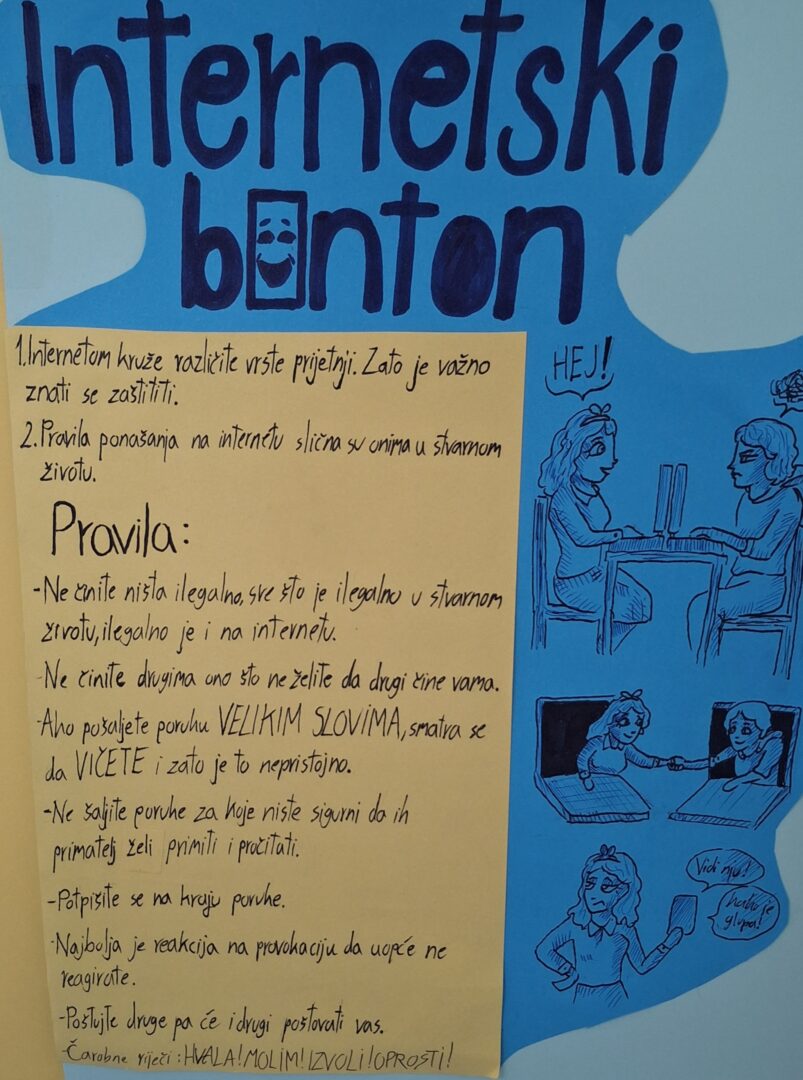 Internetski
bonton
1. Internetom kruže različite vrste prijetnji. Zato je važno
znati se zaštititi.
2. Pravila ponašanja na internetu slična su onima u stvarnom
životu.
Pravila:
-Ne činite ništa ilegalno, sve što je ilegalno u stvarnom
životu, ilegalno je i na internetu.
-Ne činite drugima ono što ne želite da drugi čine vama.
-Ako pošaljete poruku VELIKIM SLOVIMA, smatra se
da VIČETE i zato je to nepristojno.
-Ne šaljite poruke za koje niste sigurni da ih
primatelj želi primiti i pročitati.
-Potpišite se na kraju poruke.
-Najbolja je reakcija na provokaciju da uopće ne
reagirate.
-Poštujte druge pa će i drugi poštovati vas.
-Čarobne riječi: HVALA! MOLIM! IZVOLI! OPROSTI!
HEJ!
Vidi nju!
kako je
glupa!